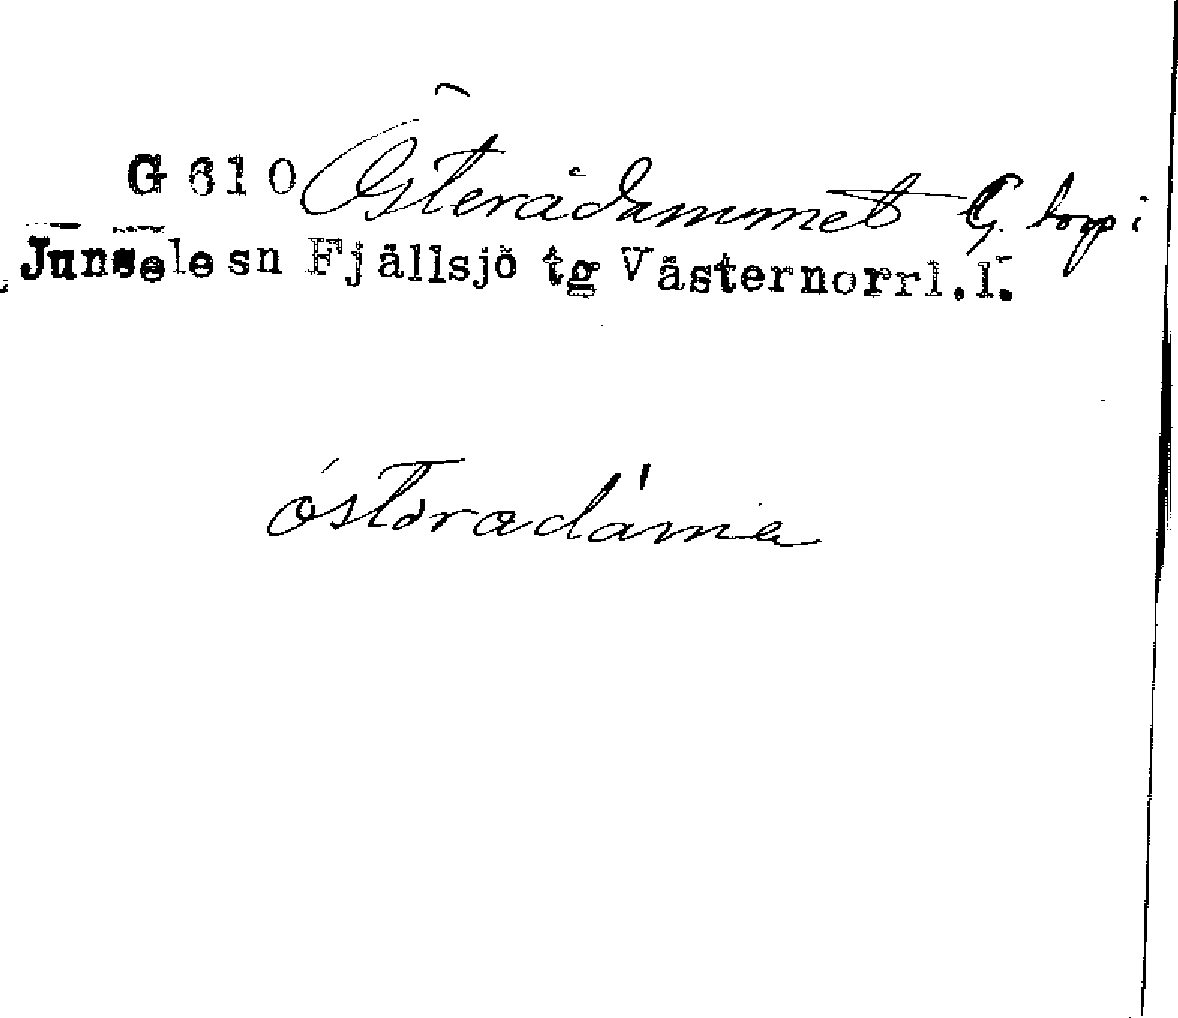 G 610 Österådammet G. torp i
Junsele sn Fjällsjö tg Västernorrl.l.
östəradáma